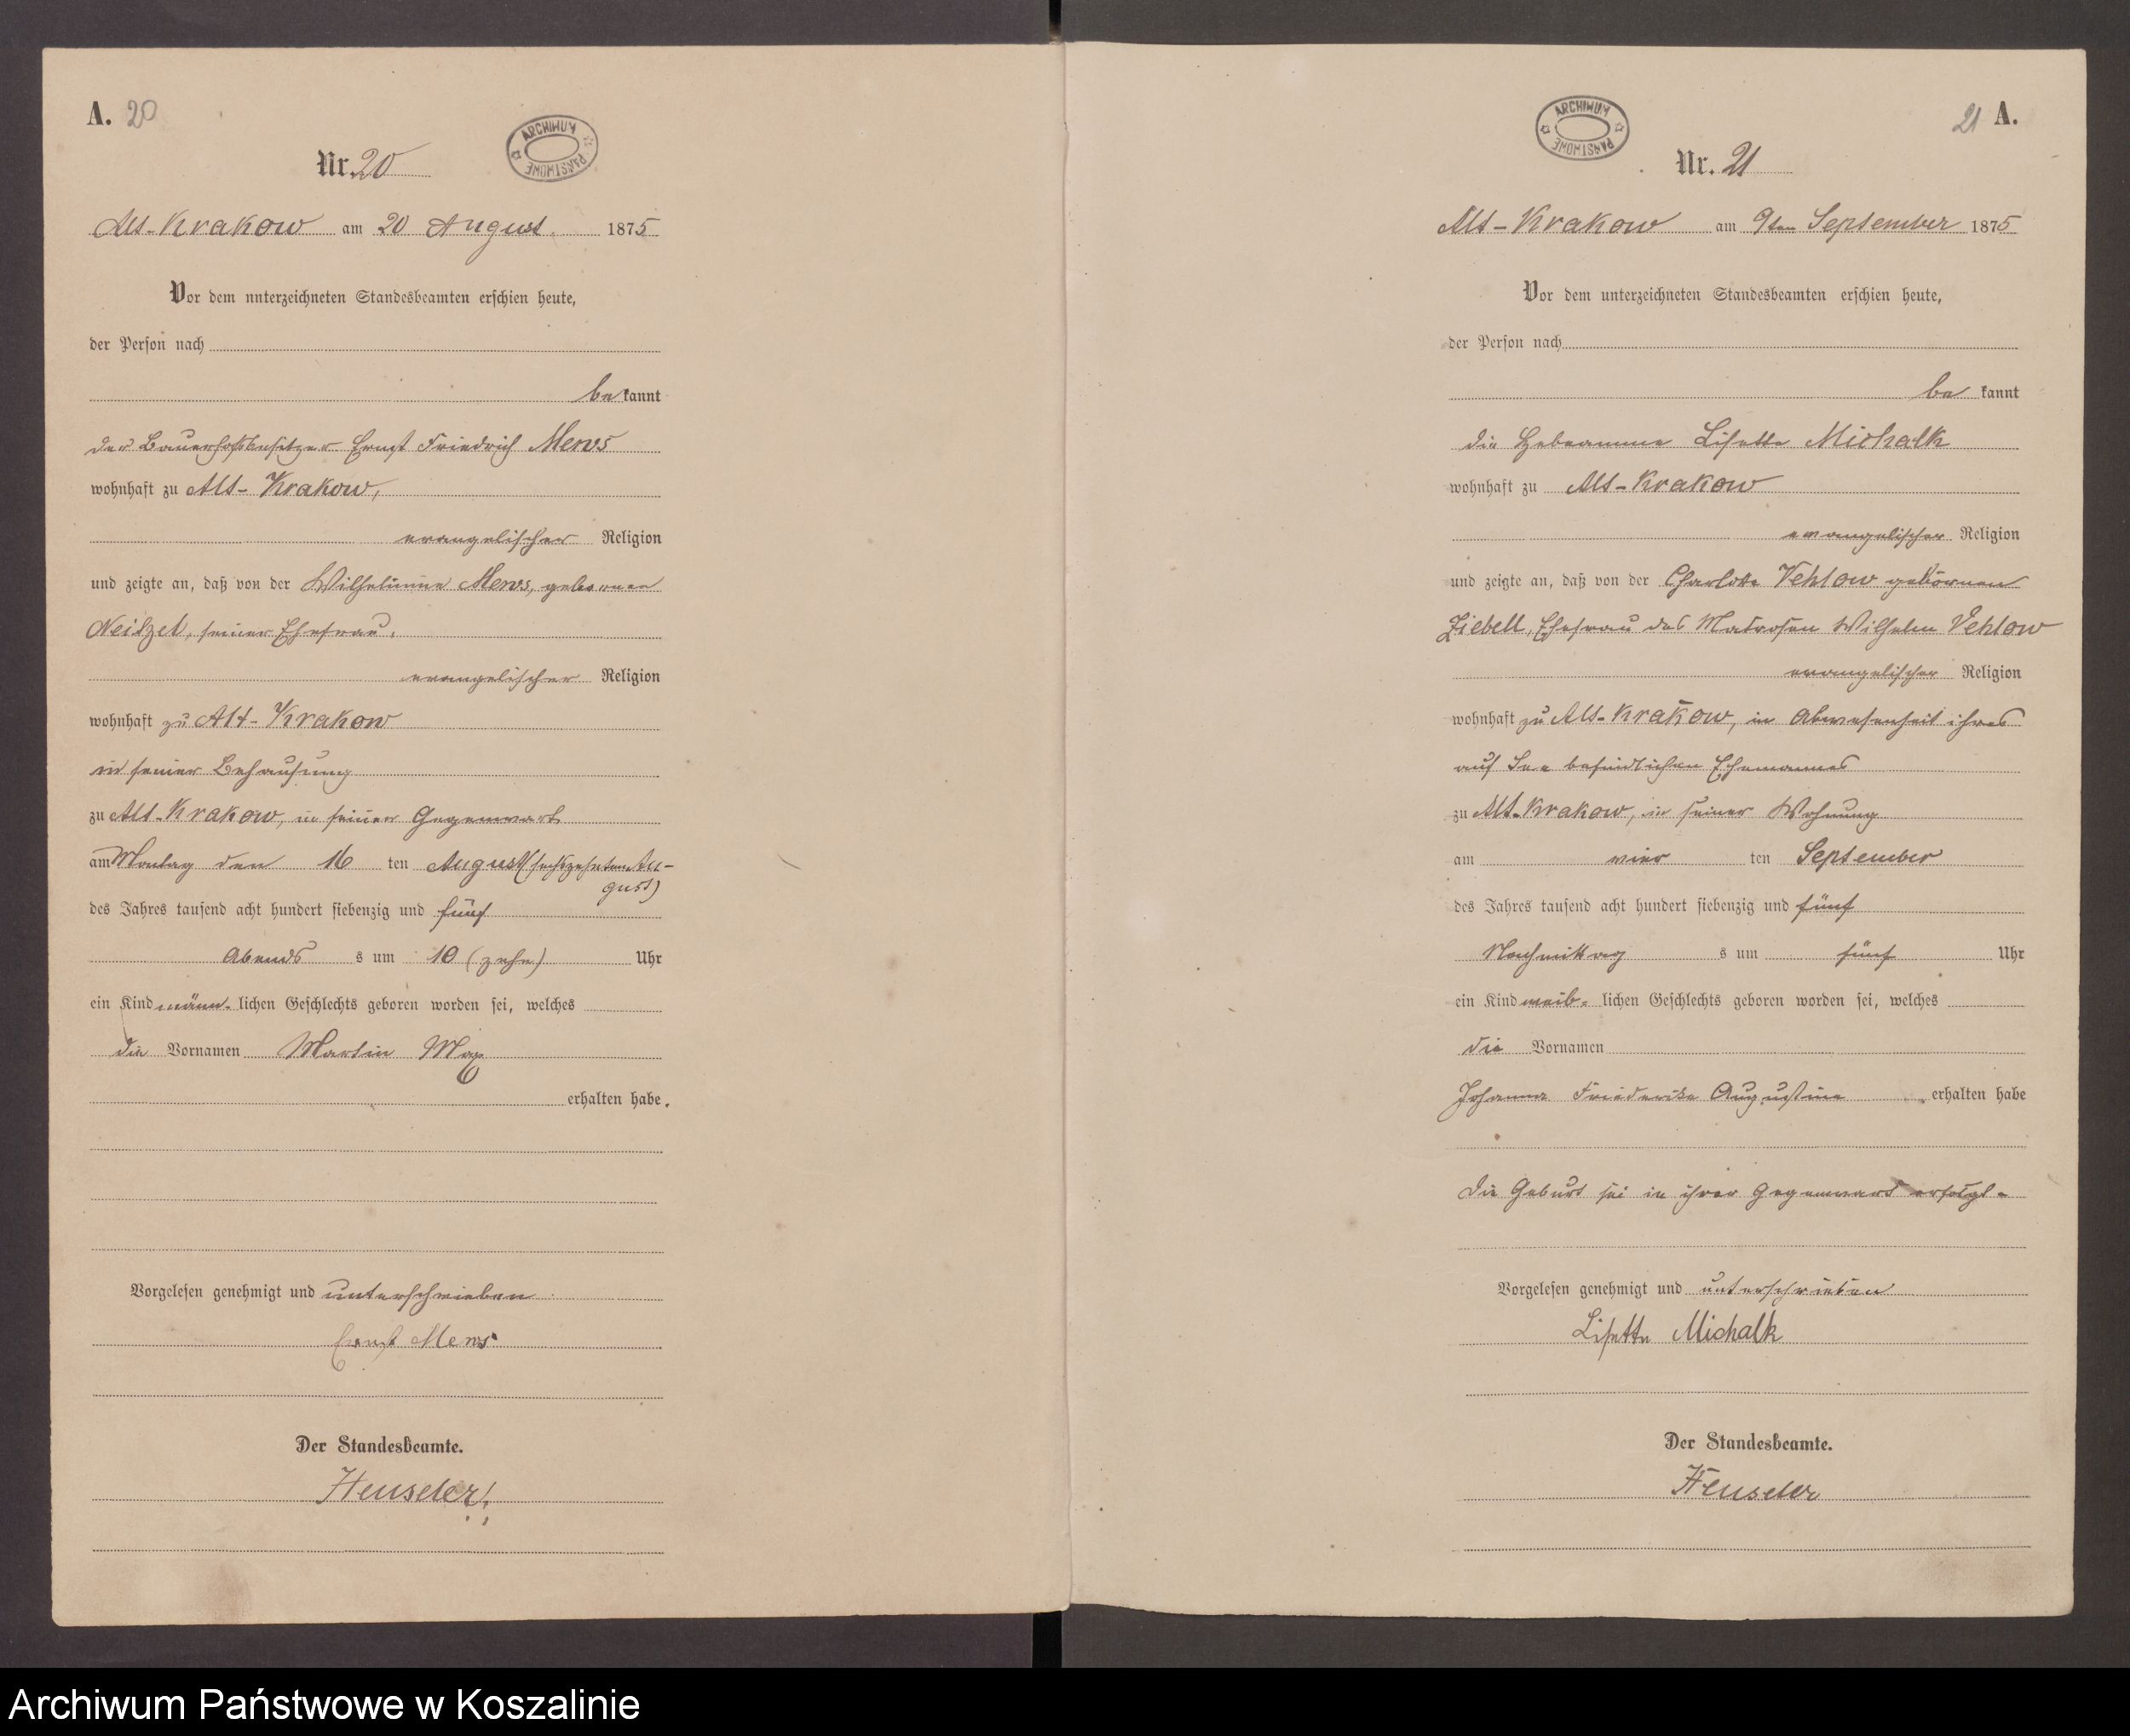 A. 20
ARCHIWUM PAŃSTWOWE
Nr. 20
Alt-Krakow am 20 August 1875
Vor dem unterzeichneten Standesbeamten erschien heute,
der Person nach
be kannt
der Bauerhofsbesitzer Ernst Friedrich Mews
wohnhaft zu Alt-Krakow,
evangelischer Religion
und zeigte an, daß von der Wilhelmine Mews, geborenen
Neitzel, seiner Ehefrau,
evangelischer Religion
wohnhaft zu Alt-Krakow
in seiner Behausung
zu Alt-Krakow, in seiner Gegenwart
am Montag den 16 ten August (sechszehnten Au-
gust)
des Jahres tausend acht hundert siebenzig und fünf
Abends s um 10 (zehn) Uhr
ein Kind männ- lichen Geschlechts geboren worden sei, welches
die Vornamen Martin Max
erhalten habe.
Vorgelesen genehmigt und unterschrieben
Ernst Mews
Der Standesbeamte.
21 A.
ARCHIWUM PAŃSTWOWE
Nr. 21
Alt-Krakow am 9ten September 1875
Vor dem unterzeichneten Standesbeamten erschien heute,
der Person nach
be kannt
die Hebeamme Lisette Michalk
wohnhaft zu Alt-Krakow
evangelischer Religion
und zeigte an, daß von der Charlotte Vehlow gebornen
Ziebell, Ehefrau des Matrosen Wilhelm Vehlow
evangelischer Religion
wohnhaft zu Alt-Krakow, in Abwesenheit ihres
auf See befindlichen Ehemannes
zu Alt-Krakow, in seiner Wohnung
am vier ten September
des Jahres tausend acht hundert siebenzig und fünf
Nachmittag s um fünf Uhr
ein Kind weib- lichen Geschlechts geboren worden sei, welches
die Vornamen
Johanna Friederike Augustine erhalten habe
Die Geburt sei in ihrer Gegenwart erfolgt.
Vorgelesen genehmigt und unterschrieben
Lisette Michalk
Der Standesbeamte.
Archiwum Państwowe w Koszalinie